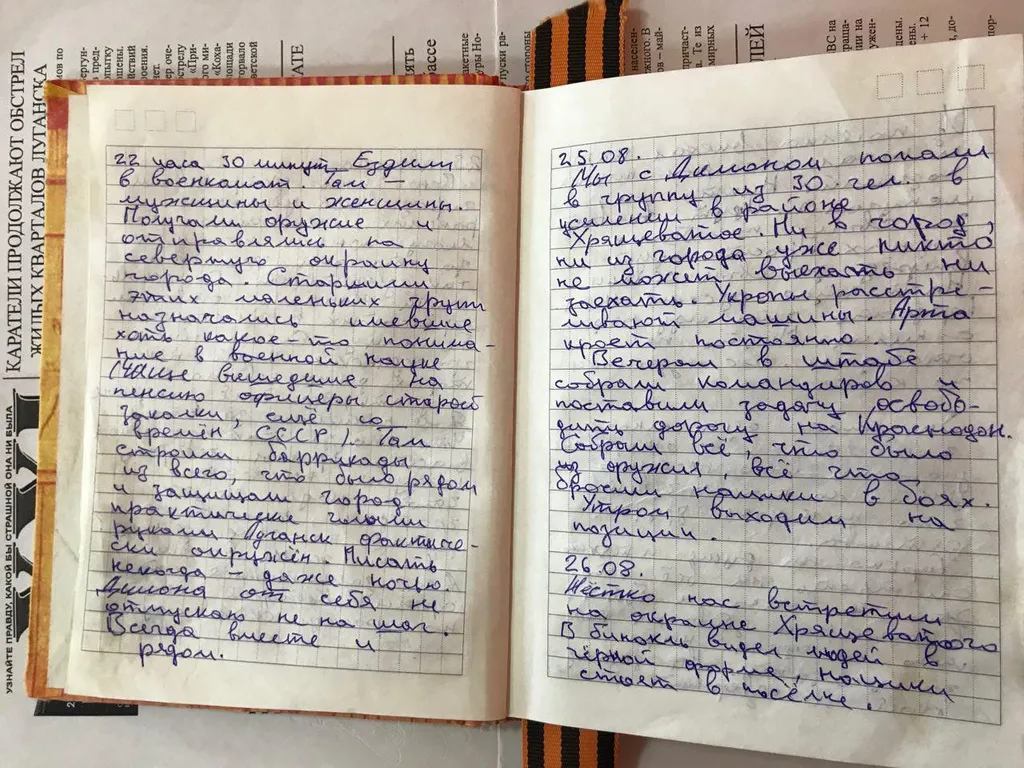 22 часа 30 минут. Ездили
в военкомат. Там –
мужчины и женщины.
Получали оружие и
отправлялись на
северную окраину
города. Старшими
этих маленьких групп
назначались имевшие
хоть какое-то понима-
ние в военной науке
(чаще вышедшие на
пенсию офицеры старой
закалки, ещё со
времён СССР). Там
строили баррикады
из всего, что было рядом
и защищали город
практически голыми
руками. Луганск фактиче-
ски окружён. Писать
некогда – даже ночью.
Димона от себя не
отпускаю не на шаг.
Всегда вместе и
рядом.
25.08.
Мы с Димоном попали
в группу из 30 чел. в
усиление в районе
Хрящеватое. Ни в город,
ни из города уже никто
не может выехать ни
заехать. Укропы расстре-
ливают машины. Арта
кроет постоянно.
Вечером в штабе
собрали командиров и
поставили задачу освобо-
дить дорогу на Краснодон.
Собрали всё, что было
из оружия, всё что
бросили нацики в боях.
Утром выходим на
позиции.
26.08.
Жёстко нас встретили
на окраине Хрящеватого
В бинокль видел людей в
чёрной форме, нацики
стоят в посёлке.
КАРАТЕЛИ ПРОДОЛЖАЮТ ОБСТРЕЛ
ЖИЛЫХ КВАРТАЛОВ ЛУГАНСКА
УЗНАЙТЕ ПРАВДУ, КАКОЙ БЫ СТРАШНОЙ ОНА НИ БЫЛА